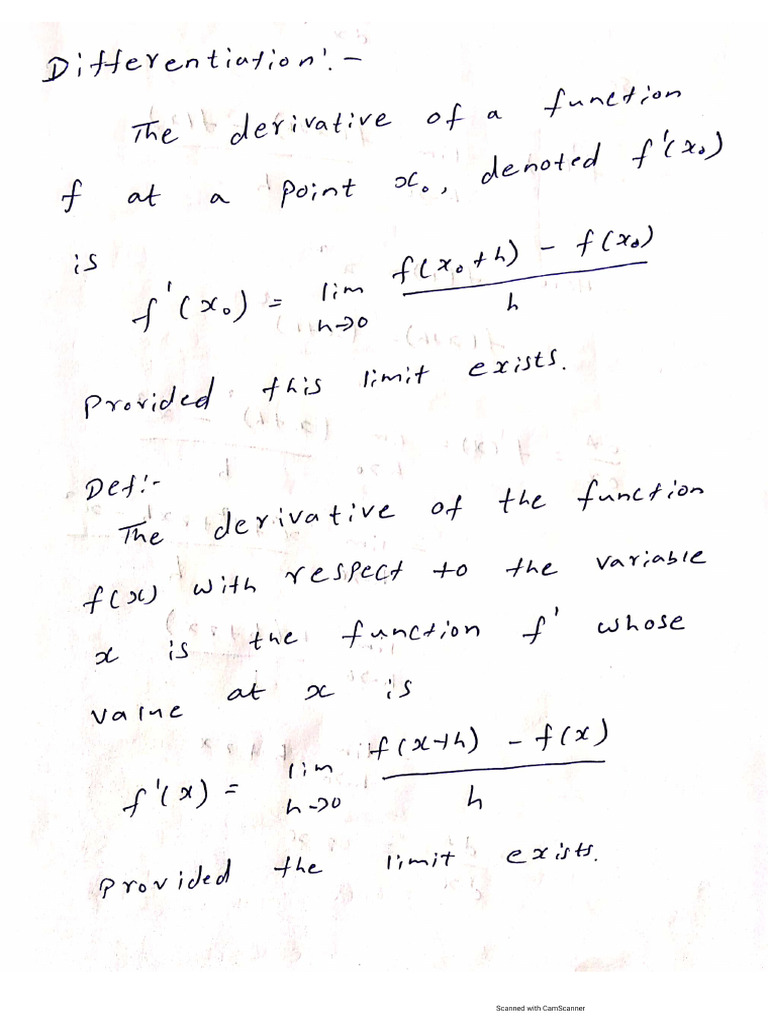 Differentiation:-
The derivative of a function
f at a point x₀, denoted f'(x₀)
is
f'(x₀) = lim h→0 f(x₀+h) - f(x₀) / h
Provided this limit exists.
Def:-
The derivative of the function
f(x) with respect to the variable
x is the function f' whose
value at x is
f'(x) = lim h→0 f(x+h) - f(x) / h
Provided the limit exists.
Scanned with CamScanner